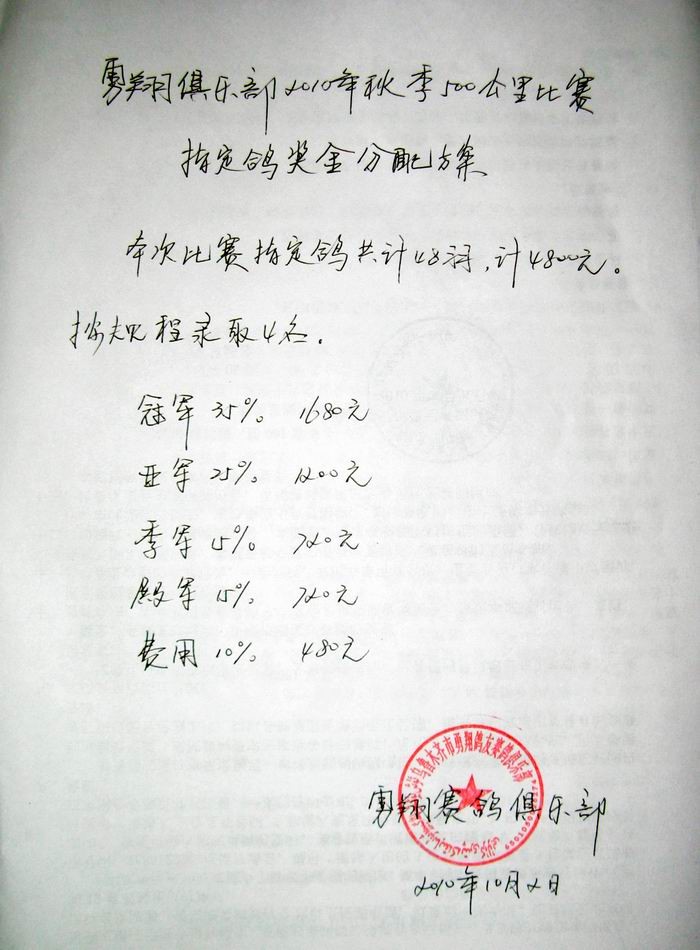 勇翔俱乐部2010年秋季500公里比赛
指定鸽奖金分配方案
本次比赛指定鸽共计48羽，计4800元。
按规程录取4名.
冠军 35% 1680元
亚军 25% 1200元
季军 15% 720元
殿军 15% 720元
费用 10% 480元
乌鲁木齐市勇翔鸽友赛鸽俱乐部
勇翔赛鸽俱乐部
2010年10月2日